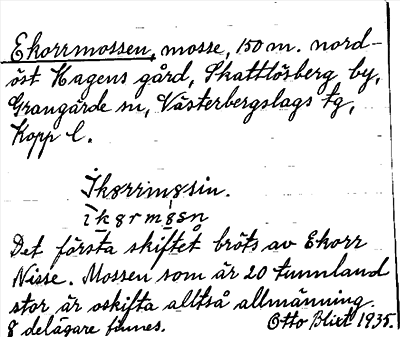 Ekorrmossen, mosse, 150 m. nord-
öst Hagens gård, Skattlösberg by,
Grangärde sn, Västerbergslags tg,
Kopp l.
Ikørrimøsin.
ikørmøsn
Det första skiftet bröts av Ekorr
Nisse. Mossen som är 20 tunnland
stor är oskifta alltså allmänning.
8 delägare finnes. Otto Blixt 1935.